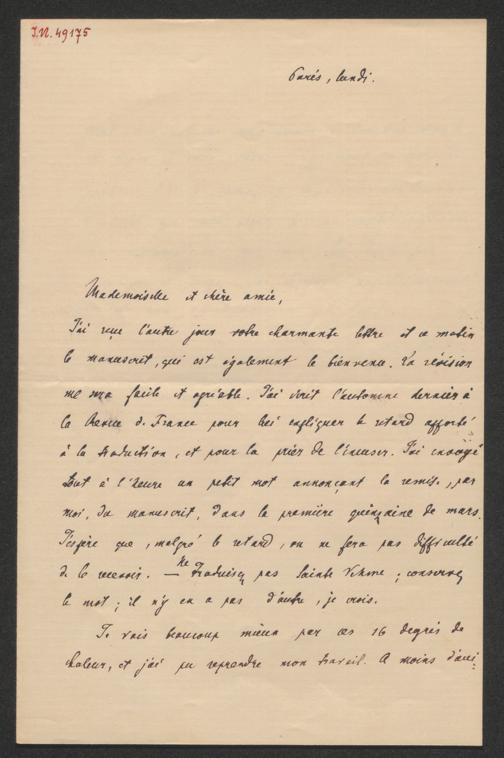 I.N. 49175
Paris, lundi.
Mademoiselle et chère amie,
J'ai reçu l'autre jour votre charmante lettre et ce matin
le manuscrit, qui est également le bienvenu. La révision
me sera facile et agréable. J'ai écrit l'automne dernier à
la Revue de France pour lui expliquer le retard apporté
à la traduction, et pour la prier de l'excuser. J'ai envoyé
tout à l'heure un petit mot annonçant la remise, par
moi, du manuscrit, dans la première quinzaine de mars.
J'espère que, malgré le retard, on ne fera pas difficulté
de le recevoir. — Ne traduisez pas Sainte Vehme ; conservez
le mot ; il n'y en a pas d'autre, je crois.
Je vais beaucoup mieux par ces 16 degrés de
chaleur, et j'ai pu reprendre mon travail. A moins d'avis